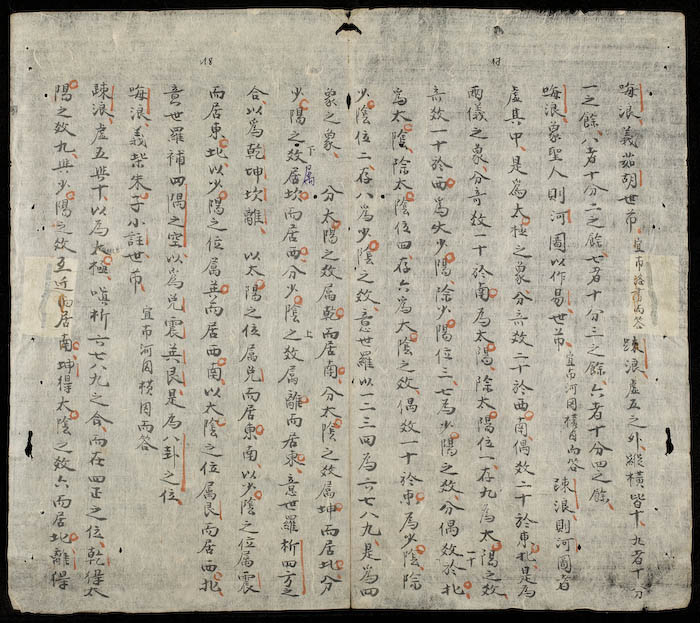 誨浪義茹胡世芇 宜芇洛書而答 疎浪虛五之外縱橫皆十九者十分
一之餘八者十分二之餘七者十分三之餘六者十分四之餘
誨浪象聖人則河圖以作易世芇 宜芇河圖橫圖而答 疎浪則河圖者
虛其中是為太極之象分奇效二十於西南偶效二十於東北是為
兩儀之象分奇效一十於南為太陽除太陽位一存九為太陽之效
奇效一十於西為少陽除少陽位三七為少陽之效分偶效一十於北
為太陰除太陰位四存六為太陰之效偶效一十於東為少陰除
少陰位二存八為少陰之效意世羅以一二三四為六七八九是為四
象之象 分太陽之效屬乾而居南分太陰之效屬坤而居北分
少陽之效居坎而居西分少陰之效屬離而居東意世羅析四方之
合以為乾坤坎離 以太陽之位屬兌而居東南以少陰之位屬震
而居東北以少陽之位屬巽而居西南以太陰之位屬艮而居西北
意世羅補四隅之空以為兌震巽艮是為八卦之位
誨浪義朱子小註世芇 宜芇河圖橫圖而答
疎浪虛五與十以為太極嗔析六七八九之合而在四正之位乾得太
陽之效九與少陽之效互近而居南坤得太陰之效六而居北離得